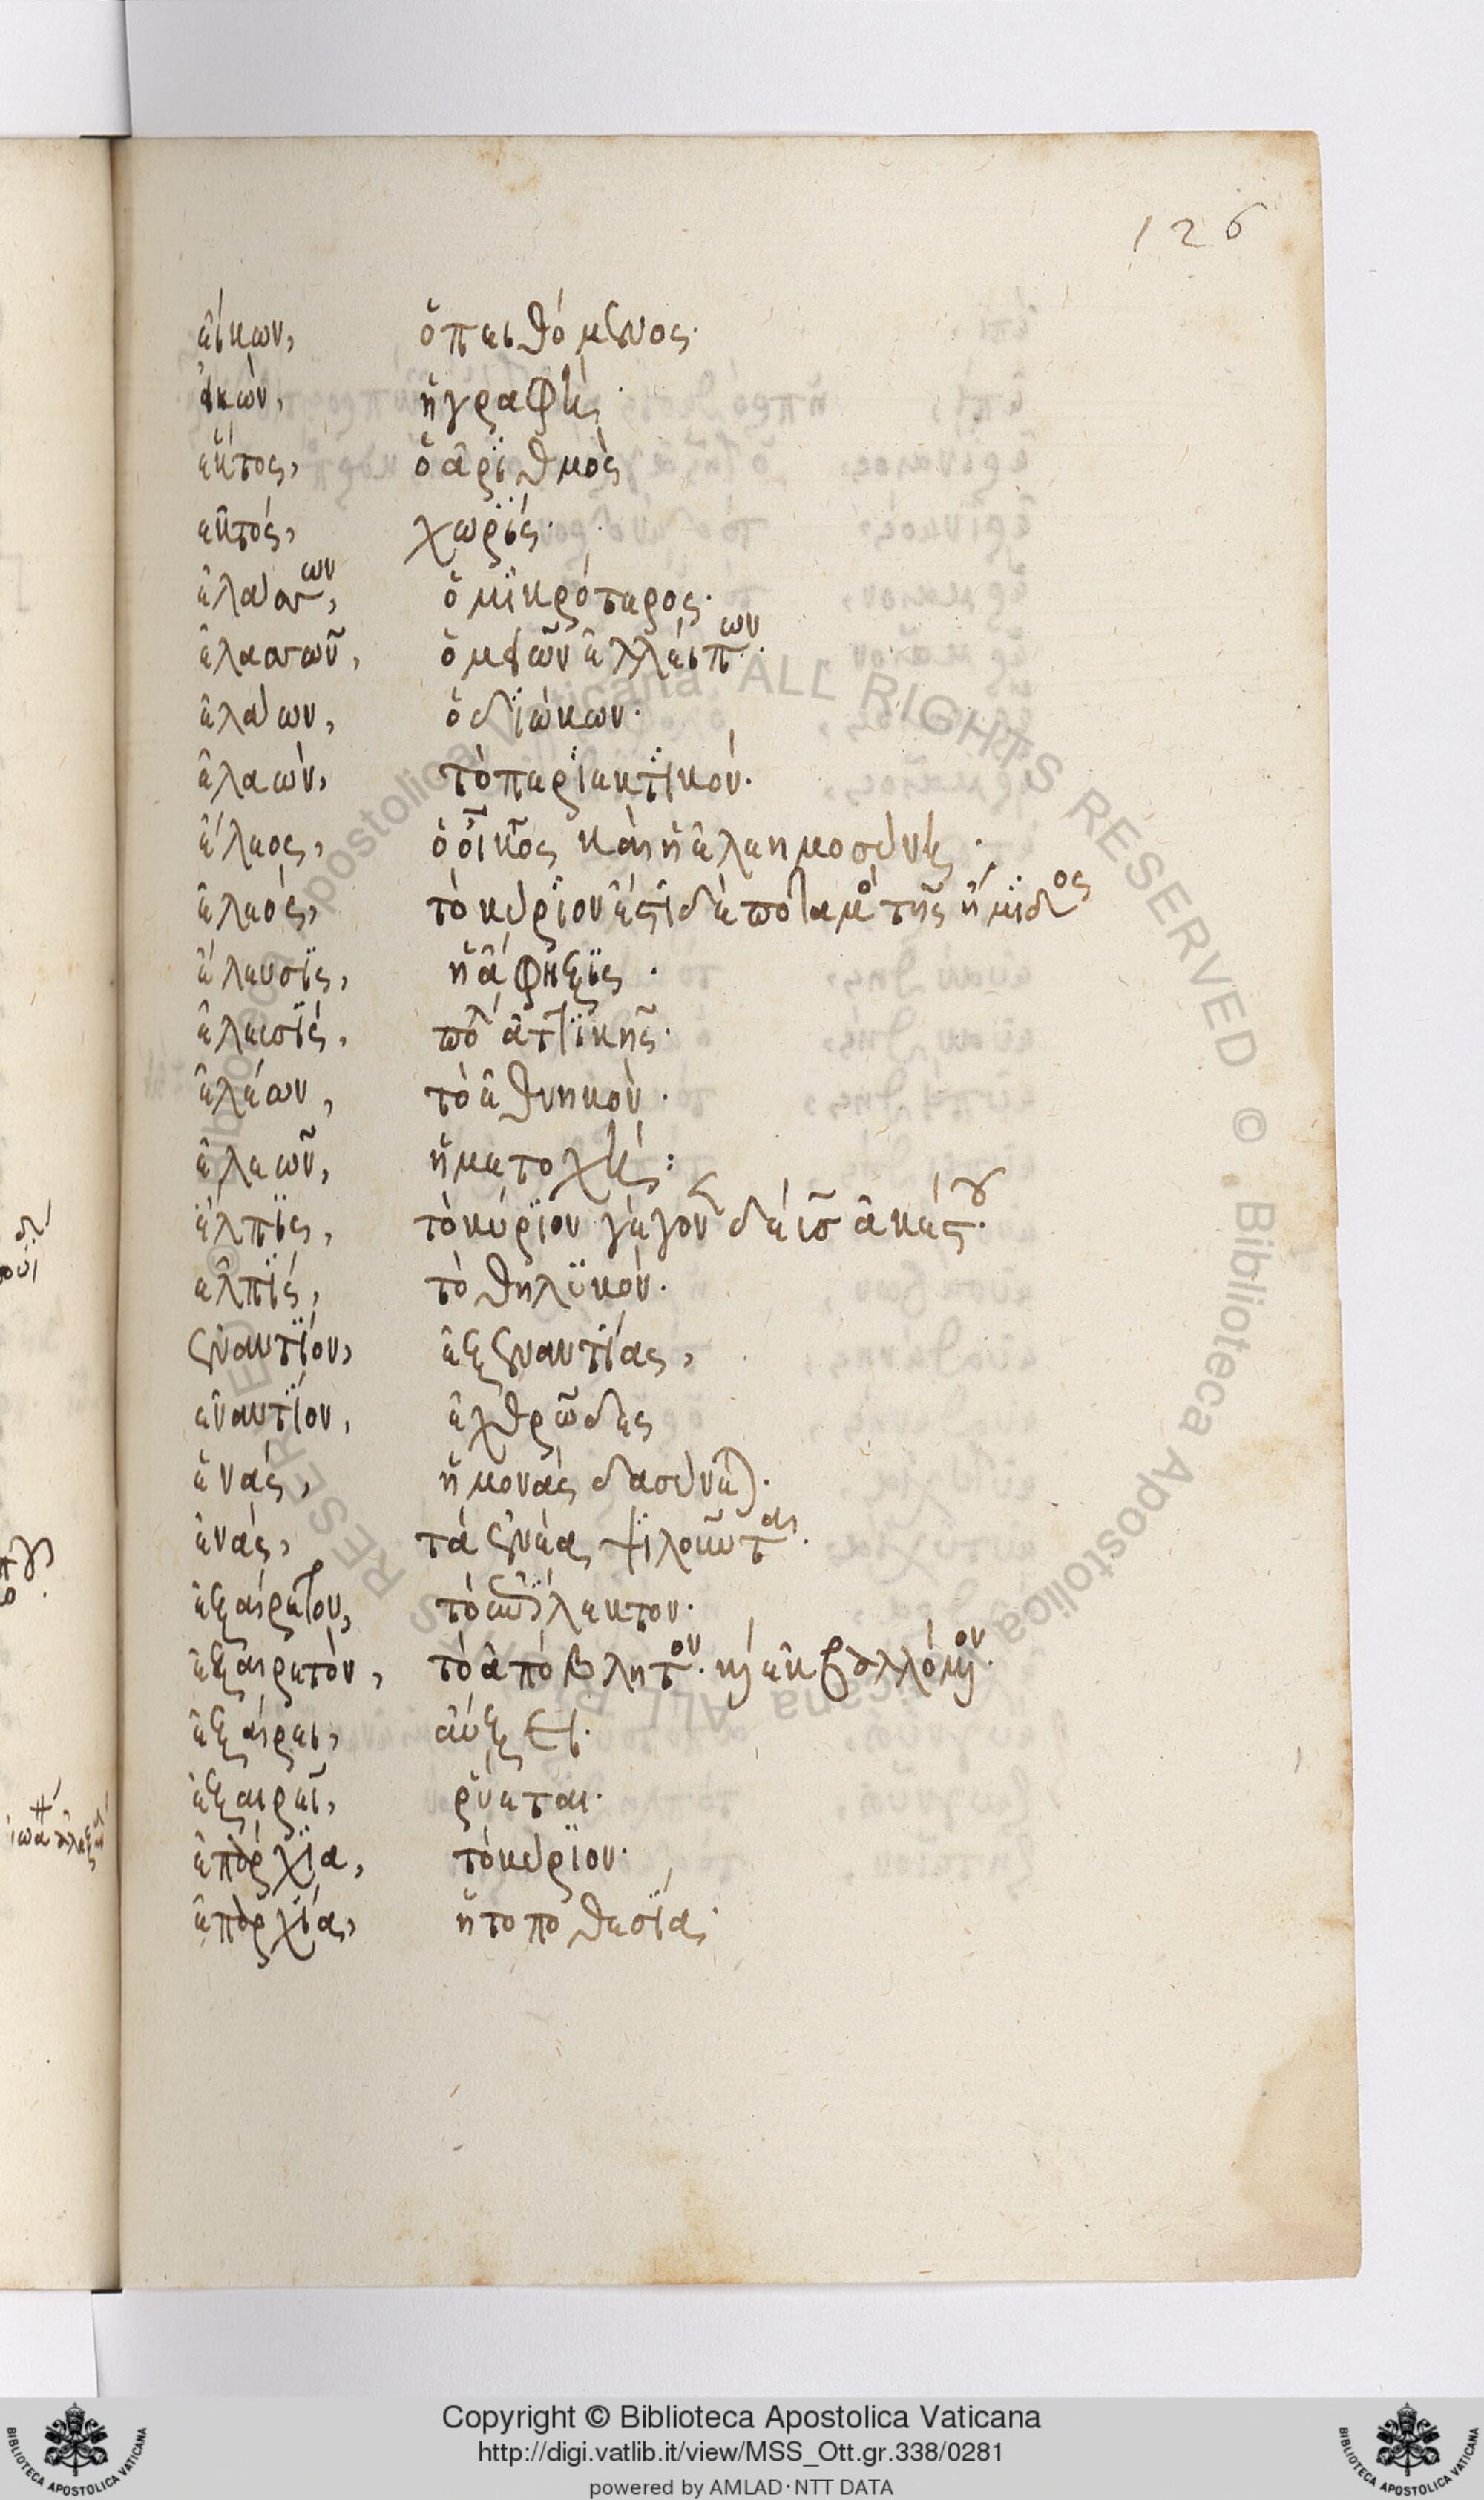 126
εἴκων, ὁ πειθόμενος.
εἰκών, ἡ γραφή.
ἕκτος, ὁ ἀριθμός
ἐκτός, χωρίς.
ἐλάσσων, ὁ μικρότερος.
ἐλασσῶν, ὁ μειῶν ἐλλείπων.
ἐλάων, ὁ διώκων.
ἐλαών, τὸ περιεκτικόν.
ἔλεος, ὁ οἶκτος καὶ ἡ ἐλεημοσύνη.
ἐλεός, τὸ κύριον
ἔλευσις, ἡ ἄφιξις.
ἐλευσίς, πόλ ἀττικῆς.
ἐλέων, τὸ ἐθνικόν.
ἐλεῶν, ἡ μετοχή:
ἔλπις, τὸ κύριον
ἐλπίς, τὸ θηλυκόν.
ἐναντίον, ἐξ ἐναντίας,
ἐναντίον, ἐχθρῶδες
ἑνάς, ἡ μονάς δασύνε).
ἐνάς, τὰ ἐνέα ψιλοῦνται.
ἐξαίρετον, τὸ ἔκλεκτον.
ἐξαιρετόν, τὸ ἀπόβλητον. καὶ ἐκβαλλόμενον.
ἐξαίρει, αὔξει.
ἐξαιρεῖ, ῥύεται.
ἐπάρχια, τὸ κύριον.
ἐπαρχία, ἡ τοποθεσία.
Copyright © Biblioteca Apostolica Vaticana
http://digi.vatlib.it/view/MSS_Ott.gr.338/0281
powered by AMLAD·NTT DATA
BIBLIOTECA APOSTOLICA VATICANA
BIBLIOTECA APOSTOLICA VATICANA
© Biblioteca Apostolica Vaticana. ALL RIGHTS RESERVED
© Biblioteca Apostolica Vaticana ALL RIGHTS RESERVED